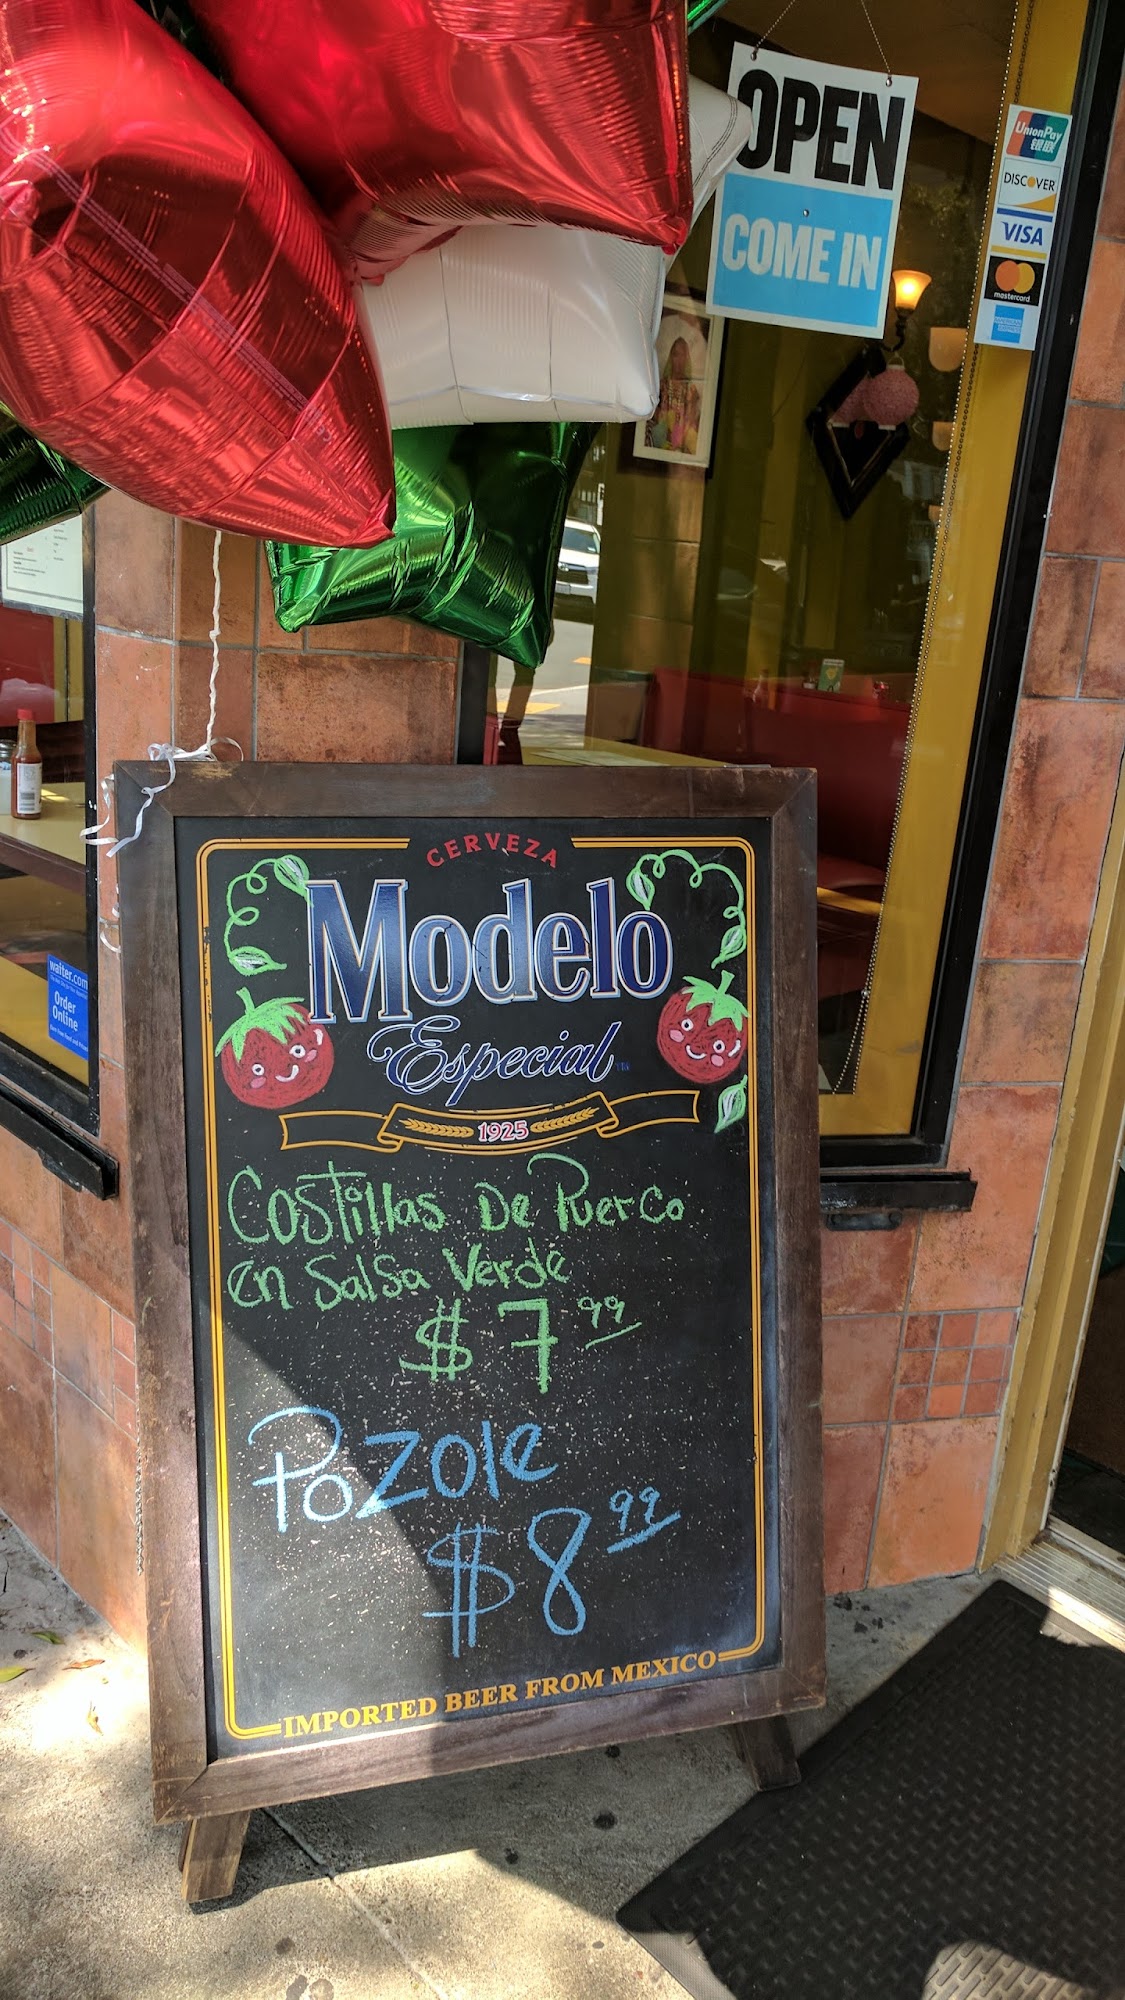 OPEN
COME IN
UnionPay
银联
DISCOVER
VISA
mastercard
AMERICAN
EXPRESS
waiter.com
Order
Online
CERVEZA
Modelo
Especial
1925
Costillas De Puerco
en Salsa Verde
$7.99
Pozole
$8.99
IMPORTED BEER FROM MEXICO